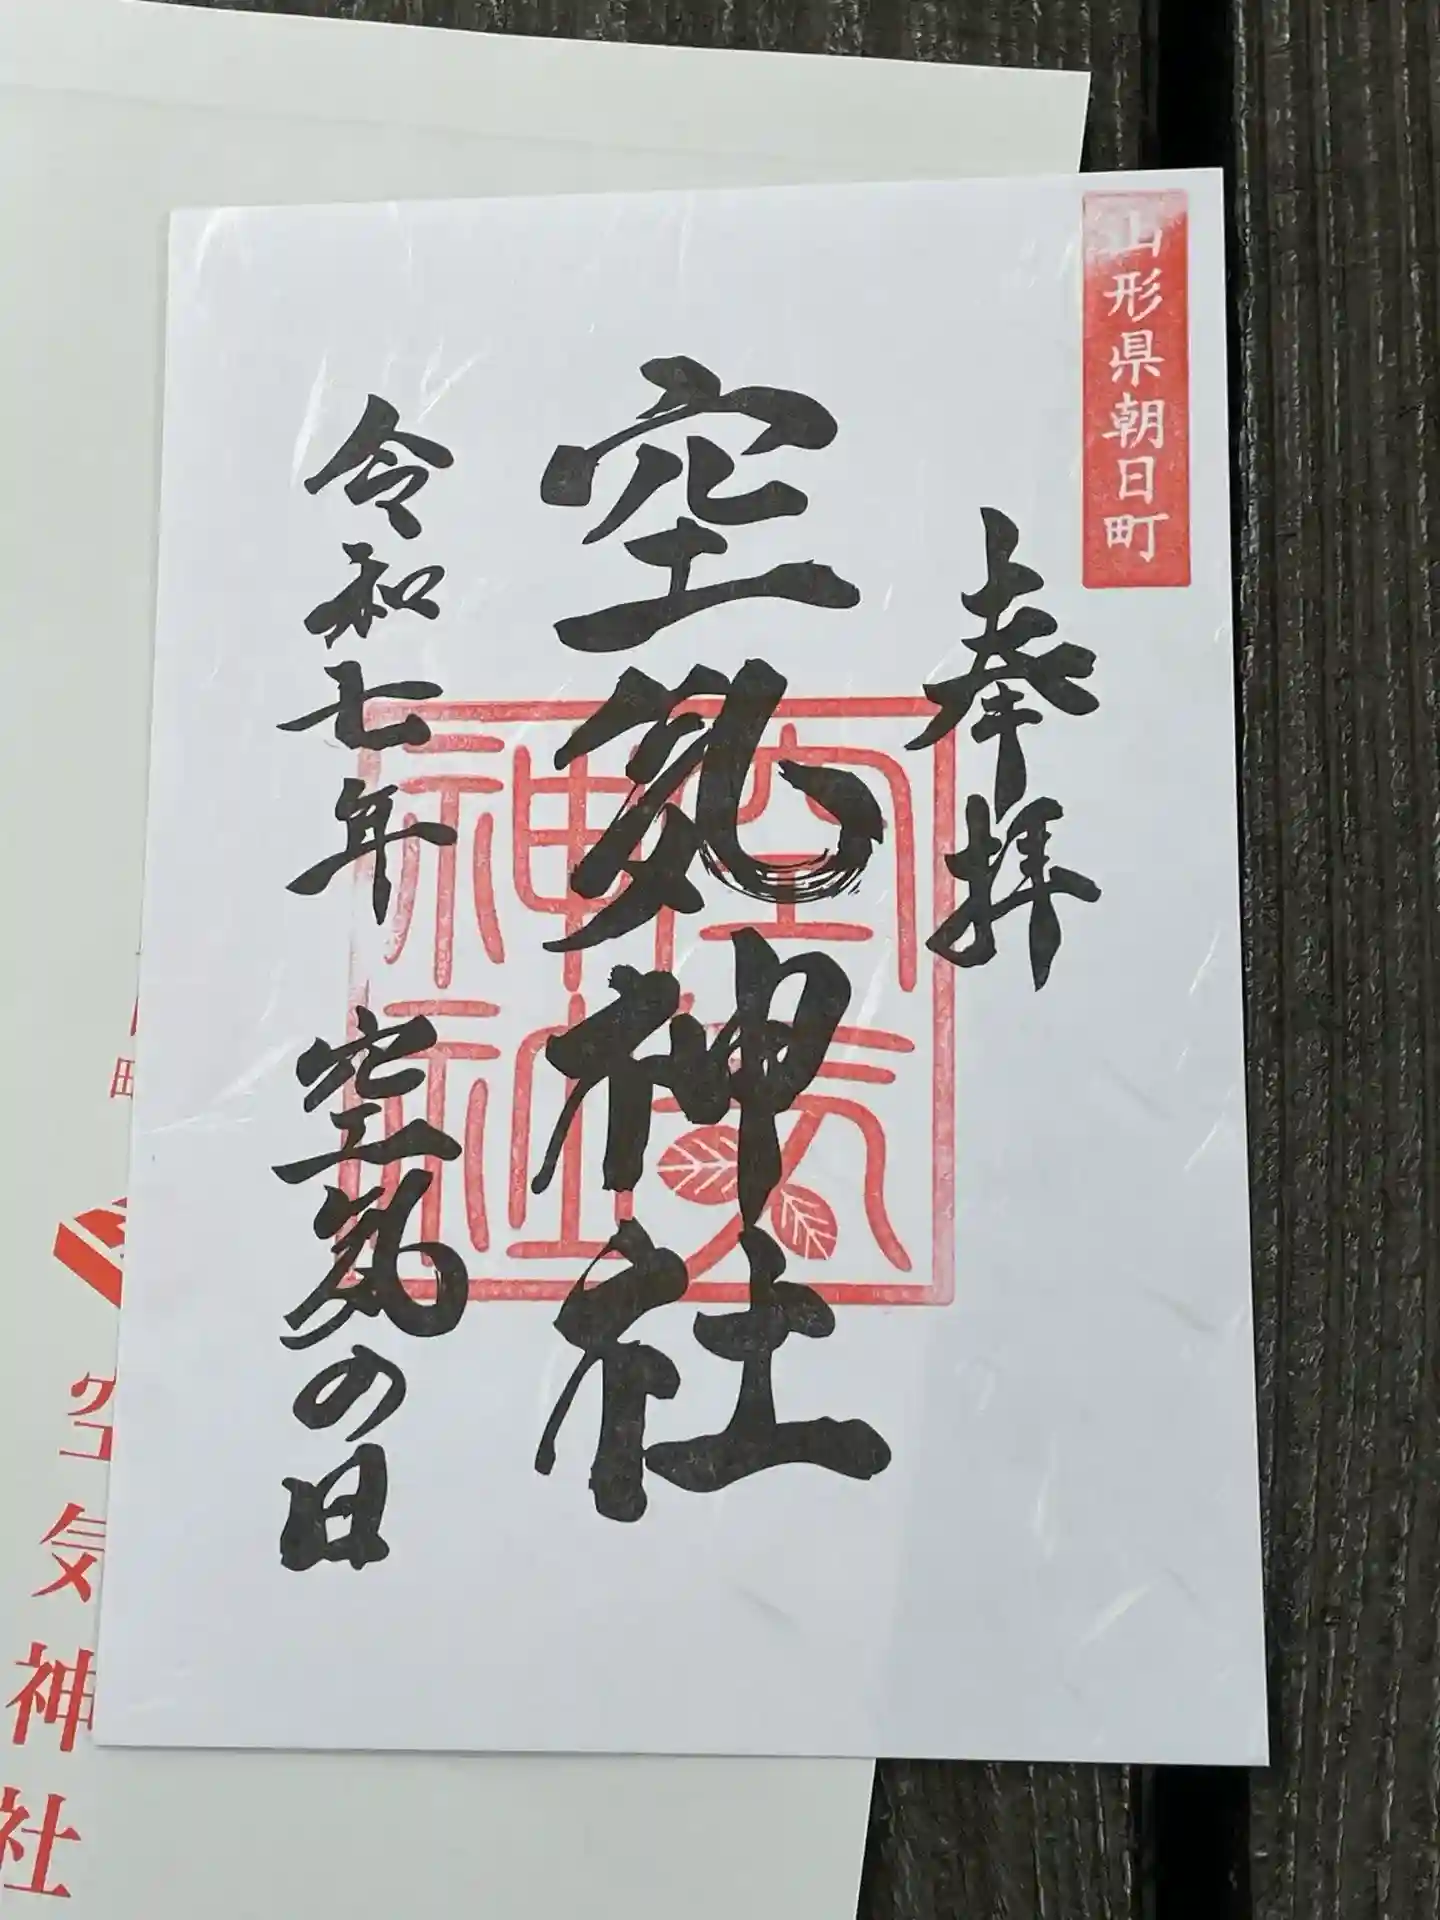 山形県朝日町
奉拝
空気神社
令和七年 空気の日
空気
神社
空気神社